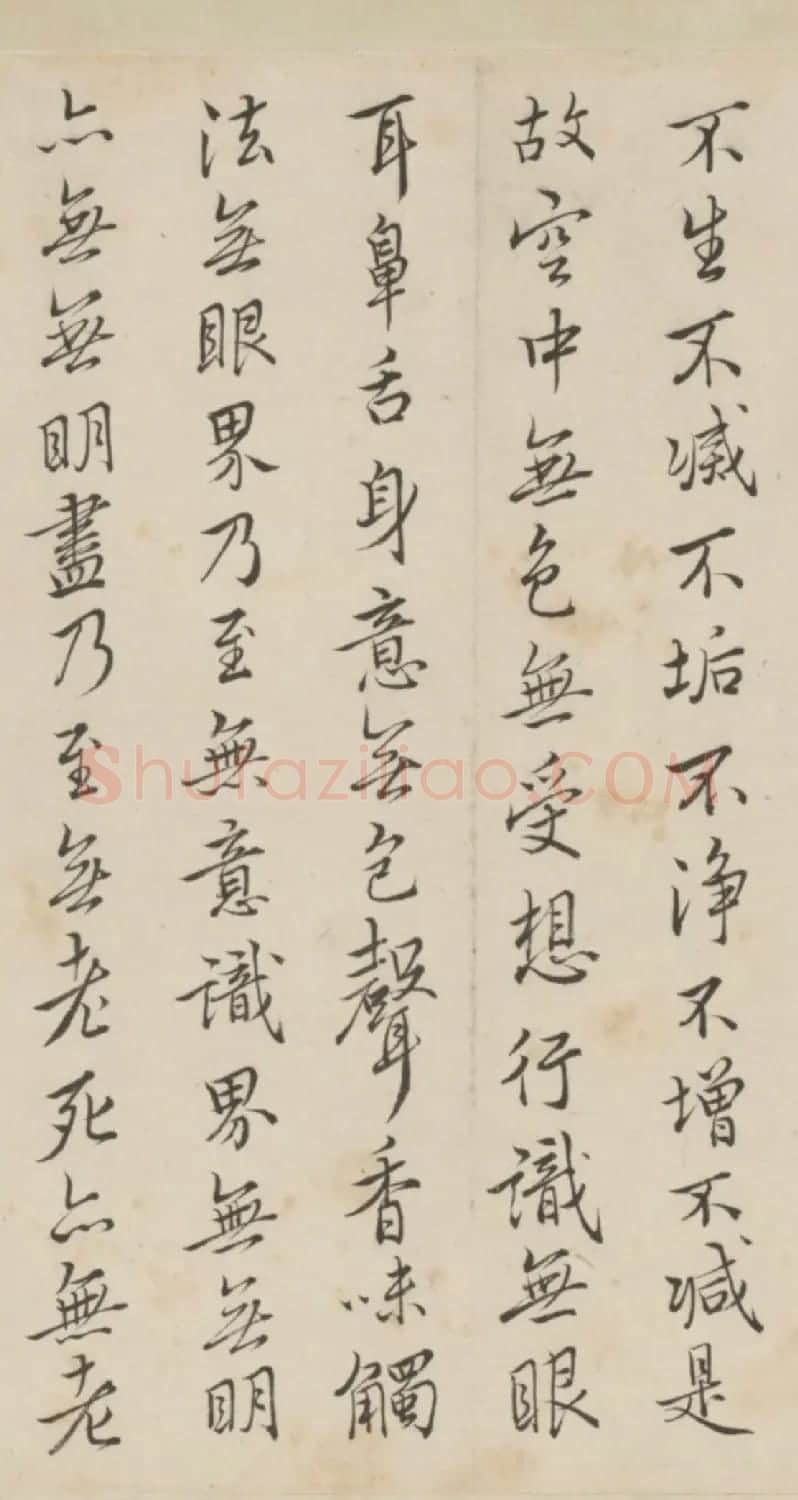 不生不滅不垢不净不增不減是
故空中無色無受想行識無眼
耳鼻舌身意無色聲香味觸
法無眼界乃至無意識界無無明
亦無無明盡乃至無老死亦無老
Shufaziliao.COM